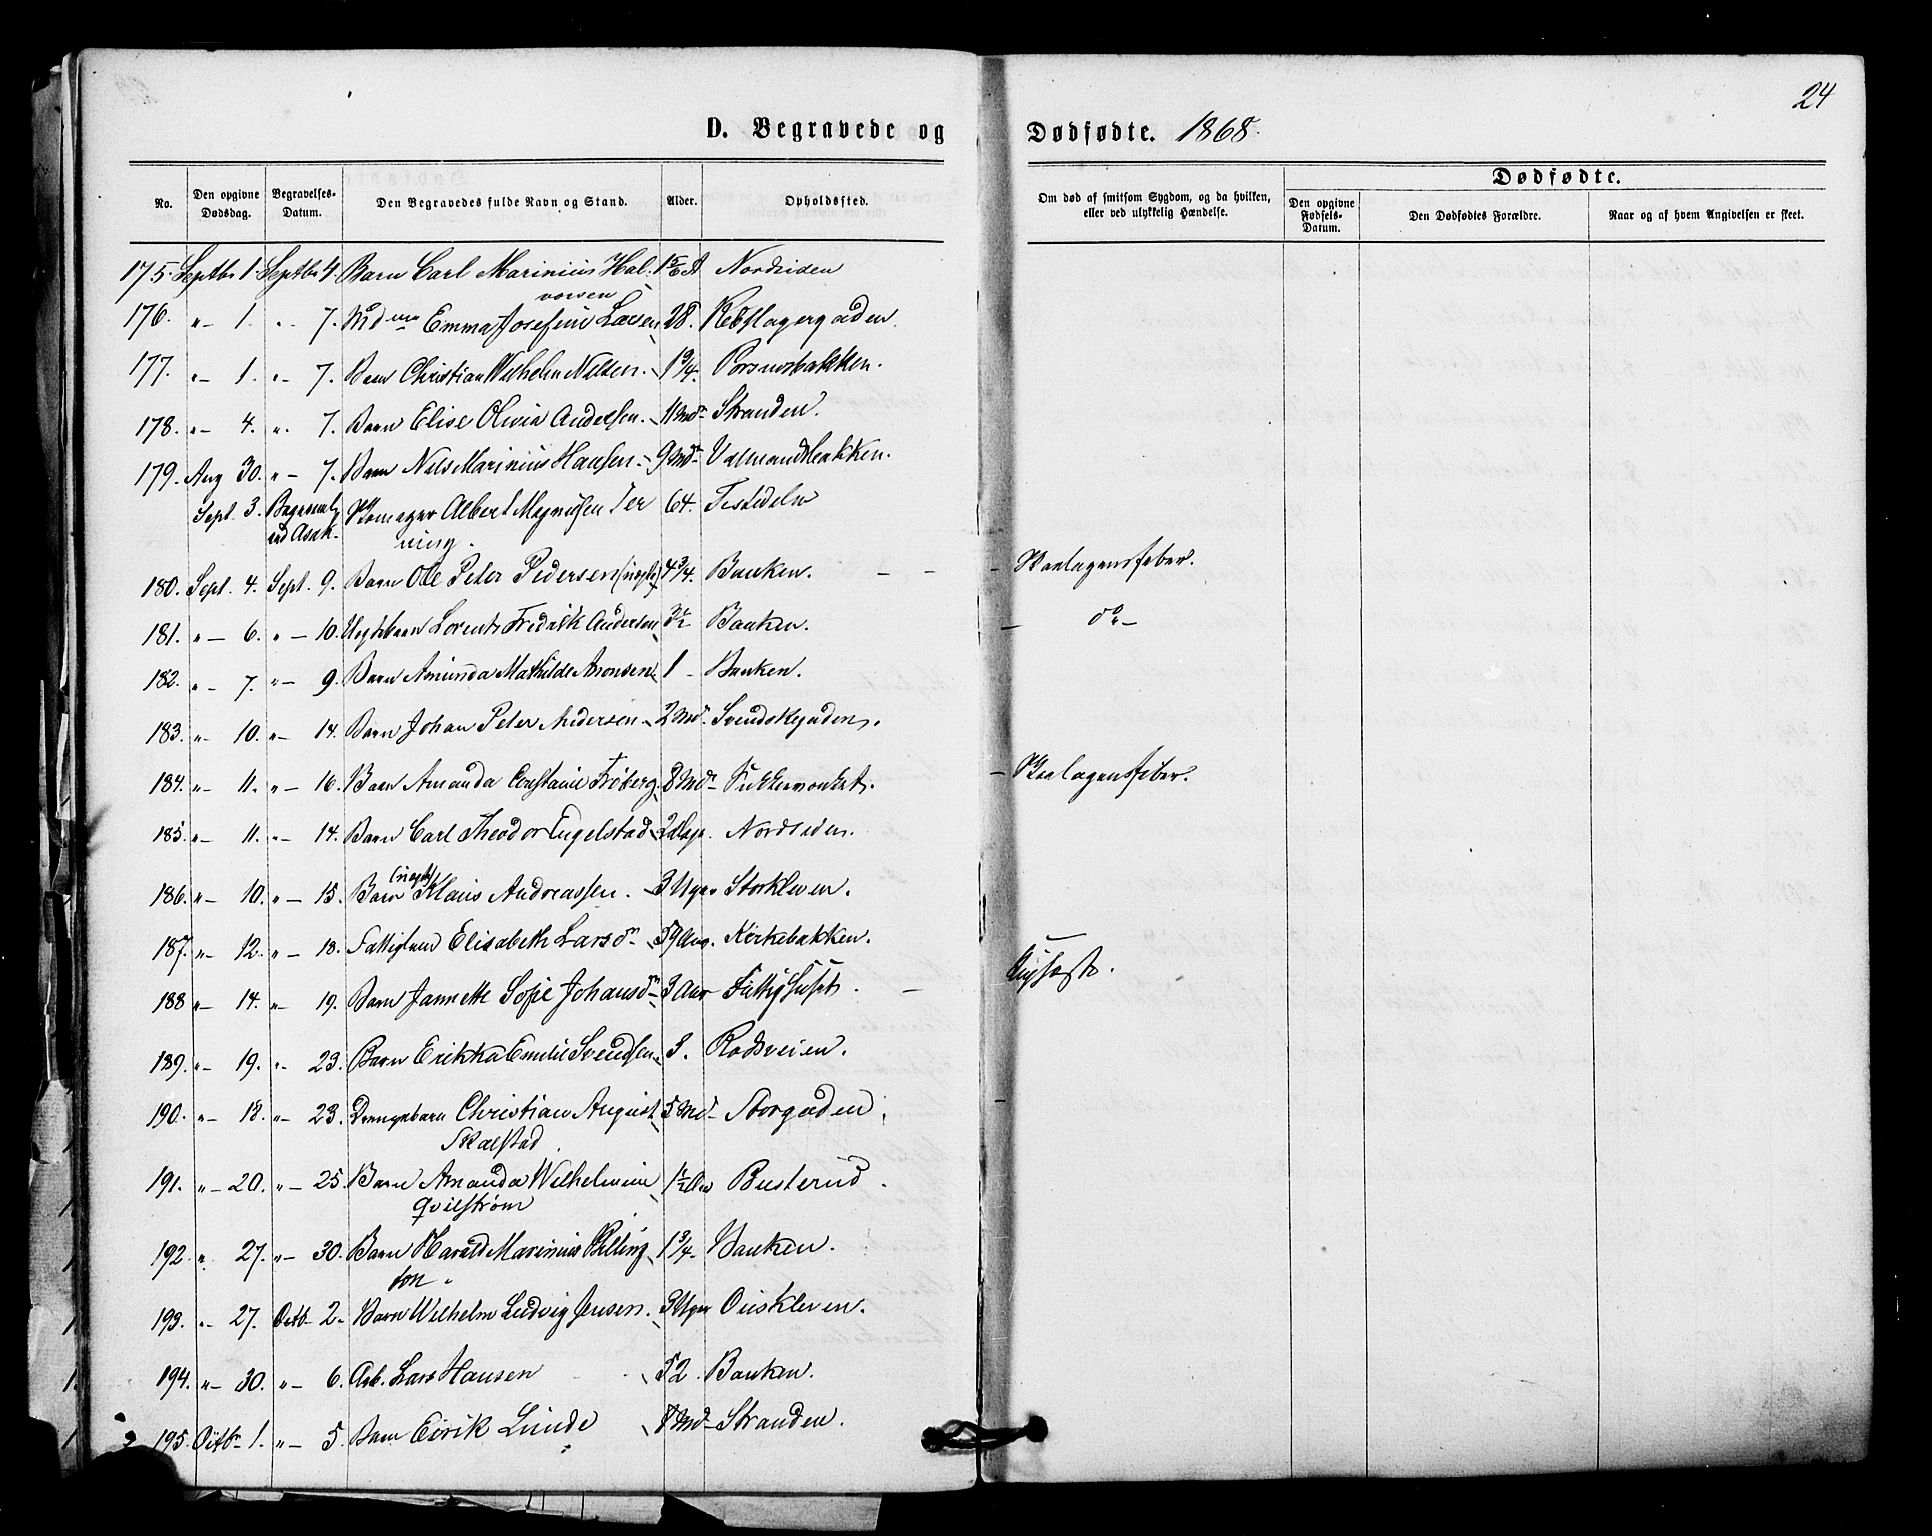 24
D. Begravede og Dødfødte. 1868.
No. Den opgivne Dødsdag. Begravelses-Datum. Den Begravedes fulde Navn og Stand. Alder. Opholdssted. Om død af smitsom Sygdom, og da hvilken, eller ved ulykkelig Hændelse. Dødfødte. Den opgivne Fødsels-Datum. Den Dødfødtes Forældre. Naar og af hvem Angivelsen er skeet.
175. Septbr 1. Septbr 4. Barn Carl Marinius Hal- 1 5/6 A Nordsiden
vorsen
176. " - 1. " - 7. Mdme Emma Josefine Larsen 28. Rebslagergaden.
177. " - 1. " - 7. Barn Christian Wilhelm Nilsen. 1 3/4. Porsnesbakken.
178. " - 4. " 7. Barn Elise Olivia Andersen. 11 Md. Stranden.
179. Aug 30. " - 7. Barn Nils Marinius Hansen. 9 Md. Vslmandsbakken.
Sept. 3. ved Asak. Skomager Albert Magnussen Ter 64. Tistedalen
ning.
180. Sept. 4. Sept. 9. Barn Ole Peter Pedersen (uægte) 4 3/4. Banken. - - - Skarlagensfeber.
181. " - 6. " - 10. Uegtebarn Lorents Fredrik Andersen 3 1/2 Banken. - do -
182. " - 7. " - 9. Barn Amunda Mathilde Aronsen. 1 - Banken.
183. " - 10. " - 14. Barn Johan Peter Andersen - 2 Md. Svendskegaden.
184. " - 11. " - 16. Barn Amanda Constanse Friberg. 8 Md. - Skarlagensfeber.
185. " - 11. " - 14. Barn Carl Theodor Engelstad 2 Dage. Nordsiden.
186. " - 10. " - 15. Barn (uægte) Klaus Andreassen. - 3 Uger Storkleven.
187. " - 12. " - 18. Fattiglem Elisabeth Larsdr 59 Aar. Kirkebakken.
188 " - 14. " - 19. Barn Jannette Sofie Johansdr - 3 Aar Fattighuset. -
189. " - 19. " - 23. Barn Erikka Emilie Svendsen. 3. Rødsveien.
190. " - 18. " - 23. Drengebarn Christian August 5 Md. Storgaden.
Skalstad
191. " - 20. " - 25. Barn Amanda Wilhelmine 1 1/2 Aar Busterud.
Qvilstrøm
192. " 27. " - 30. Barn Harald Marinius Killing 1 3/4. Banken.
ton
193. " - 27. Octb. 2. Barn Wilhelm Ludvig Jensen. 3 Uger Ouskleven.
194. " - 30. " - 6. Arb. Lars Hansen 52. Banken.
195. Octbr 1. " - 5. Barn Eirik Lunde 8 Md. Stranden.